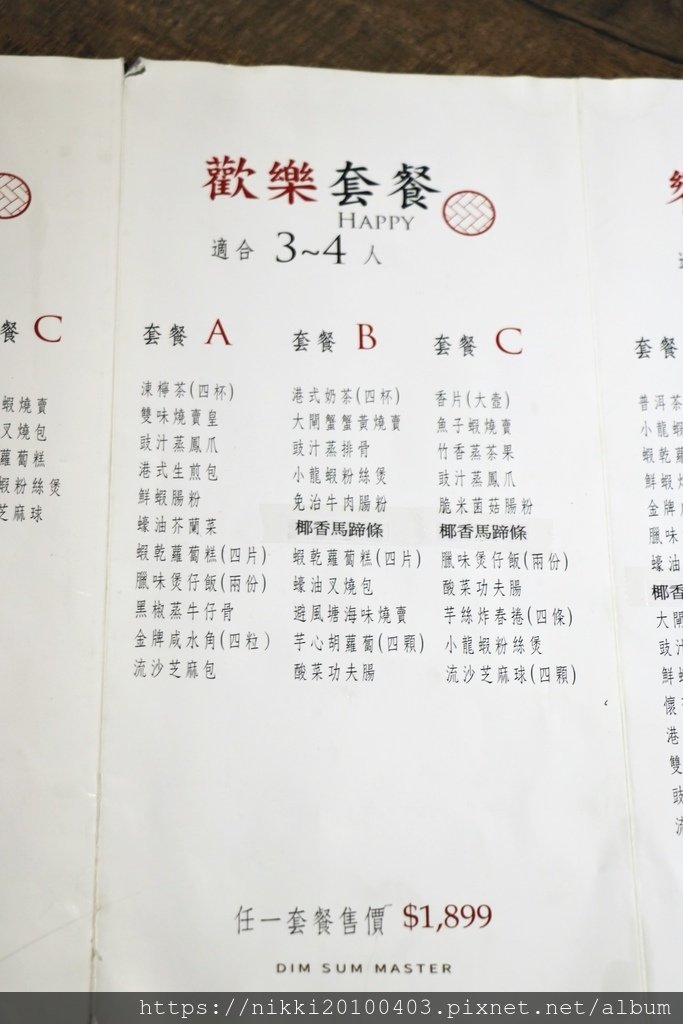 歡樂套餐
HAPPY
適合 3~4 人
餐 C
蝦燒賣
叉燒包
蘿蔔糕
蝦粉絲煲
芝麻球
套餐 A
凍檸茶(四杯)
雙味燒賣皇
豉汁蒸鳳爪
港式生煎包
鮮蝦腸粉
蠔油芥蘭菜
蝦乾蘿蔔糕(四片)
臘味煲仔飯(兩份)
黑椒蒸牛仔骨
金牌咸水角(四粒)
流沙芝麻包
套餐 B
港式奶茶(四杯)
大閘蟹蟹黃燒賣
豉汁蒸排骨
小龍蝦粉絲煲
免治牛肉腸粉
椰香馬蹄條
蝦乾蘿蔔糕(四片)
蠔油叉燒包
避風塘海味燒賣
芋心胡蘿蔔(四顆)
酸菜功夫腸
套餐 C
香片(大壺)
魚子蝦燒賣
竹香蒸茶果
豉汁蒸鳳爪
脆米菌菇腸粉
椰香馬蹄條
臘味煲仔飯(兩份)
酸菜功夫腸
芋絲炸春捲(四條)
小龍蝦粉絲煲
流沙芝麻球(四顆)
套餐
普洱茶
小龍蝦
蝦乾蘿
鮮蝦
金牌
臘味
蠔油
椰香
大閘
豉汁
鮮蝦
懷
港
雙
豉
流
任一套餐售價 $1,899
DIM SUM MASTER
https://nikki20100403.pixnet.net/album